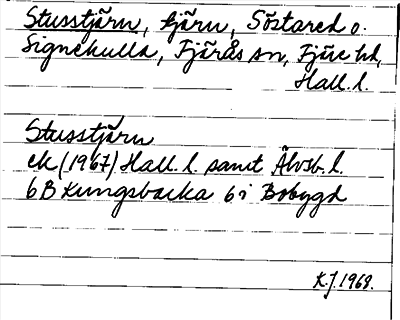 Stusstjärn, tjärn, Söstared o.
Signekulla, Fjärås sn, Fjäre hd,
Hall. l.
Stusstjärn
ek (1967) Hall. l. samt Älvsb. l.
6B Kungsbacka 6i Bobygd
K.J. 1968.